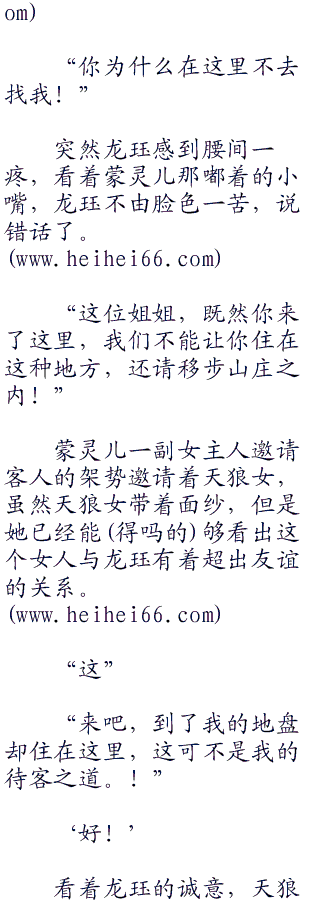 om)
“你为什么在这里不去
找我！”
突然龙珏感到腰间一
疼，看着蒙灵儿那嘟着的小
嘴，龙珏不由脸色一苦，说
错话了。
(www.heihei66.com)
“这位姐姐，既然你来
了这里，我们不能让你住在
这种地方，还请移步山庄之
内！”
蒙灵儿一副女主人邀请
客人的架势邀请着天狼女，
虽然天狼女带着面纱，但是
她已经能(得吗的)够看出这
个女人与龙珏有着超出友谊
的关系。
(www.heihei66.com)
“这”
“来吧，到了我的地盘
却住在这里，这可不是我的
待客之道。！”
‘好！’
看着龙珏的诚意，天狼